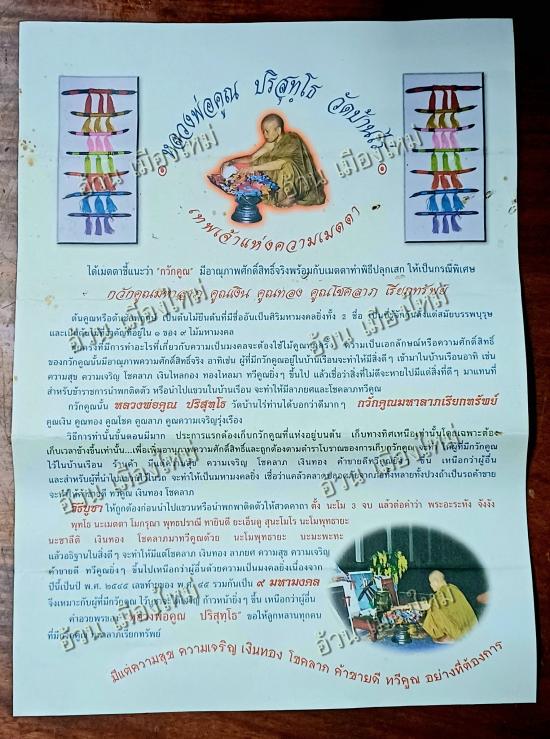 หลวงพ่อคูณ ปริสุทฺโธ วัดบ้านไร่
เทพเจ้าแห่งความเมตตา
ได้เมตตาชี้แนะว่า "กวักคูณ" มีอานุภาพศักดิ์สิทธิ์จริงพร้อมกับเมตตาทำพิธีปลุกเสก ให้เป็นกรณีพิเศษ
กวักคูณมหาลาภ คูณเงิน คูณทอง คูณโชคลาภ เรียกทรัพย์
ต้นคูณหรือต้นชัยพฤกษ์ เป็นต้นไม้ยืนต้นที่มีชื่ออันเป็นสิริมหามงคลยิ่งทั้ง 2 ชื่อ ตั้งแต่สมัยบรรพบุรุษ
อยู่ใน ๑ ของ ๙ ไม้มหามงคล
ทุกครั้งที่มีการทำอะไรที่เกี่ยวกับความเป็นมงคลจะต้องใช้ไม้คูณ เป็นเอกลักษณ์หรือความศักดิ์สิทธิ์
ของกวักคูณนั้นมีอานุภาพความศักดิ์สิทธิ์จริง อาทิเช่น ผู้ที่มีกวักคูณอยู่ในบ้านเรือนจะทำให้มีสิ่งดีๆ เข้ามาในบ้านเรือนอาทิ เช่น
ความสุข ความเจริญ โชคลาภ เงินไหลกอง ทองไหลมา ทวีคูณยิ่งๆ ขึ้นไป แล้วเชื่อว่าสิ่งที่ไม่ดีจะหายไปมีแต่สิ่งที่ดีๆ มาแทนที่
สำหรับข้าราชการนำพกติดตัว หรือนำไปแขวนในบ้านเรือน จะทำให้มีลาภยศและโชคลาภทวีคูณ
กวักคูณนั้น หลวงพ่อคูณ ปริสุทฺโธ วัดบ้านไร่ท่านได้บอกว่าดีมากๆ กวักคูณมหาลาภเรียกทรัพย์
คูณเงิน คูณทอง คูณโชค คูณลาภ คูณความเจริญรุ่งเรือง
วิธีการทำนั้นขั้นตอนมีมาก ประการแรกต้องเก็บกวักคูณที่แห้งอยู่บนต้น เก็บทางทิศเหนือเท่านั้นโดยเฉพาะต้อง
เก็บเวลาช้างขึ้นเท่านั้น...เพื่อเพิ่มอานุภาพความศักดิ์สิทธิ์และถูกต้องตามตำราโบราณของการเก็บกวักคูณ ผู้ที่มีกวักคูณ
ไว้ในบ้านเรือน ร้านค้า ความสุข ความเจริญ โชคลาภ เงินทอง ค้าขายดีทวีคูณยิ่งๆ ขึ้น เหนือกว่าผู้อื่น
และสำหรับผู้ที่นำไป จะทำให้เป็นมหามงคลยิ่ง เชื่อว่าแคล้วคลาดปลอดภัย ทั้งหลายทั้งปวงถ้าเป็นรถค้าขาย
จะทำให้ค้าขายดี ทวีคูณ เงินทอง โชคลาภ
วิธีบูชา ให้ถูกต้องก่อนนำไปแขวนหรือนำพกพาติดตัวให้สวดคาถา ตั้ง นะโม 3 จบ แล้วต่อคำว่า พระอะระหัง จังงัง
พุทโธ นะเมตตา โมกรุณา พุทธปราณี ทายินดี ยะเอ็นดู สุนะโมโร นะโมพุทธายะ
นะชาลีติ เงินทอง โชคลาภมาทวีคูณด้วย นะโมพุทธายะ นะมะพะทะ
แล้วอธิฐานในสิ่งดีๆ จะทำให้มีแต่โชคลาภ เงินทอง ลาภยศ ความสุข ความเจริญ
ค้าขายดี ทวีคูณยิ่งๆ ขึ้นไปเหนือกว่าผู้อื่นด้วยความเป็นมงคลยิ่งเนื่องจาก
ปีนี้เป็นปี พ.ศ. ๒๕๔๕ เลขท้ายของ พ.ศ. ๔๕ รวมกันเป็น ๙ มหามงคล
จึงเหมาะกับผู้ที่มีกวักคูณ ไว้บูชา ก้าวหน้ายิ่งๆ ขึ้น เหนือกว่าผู้อื่น
คำอวยพรของ "หลวงพ่อคูณ ปริสุทฺโธ" ขอให้ลูกหลานทุกคน
ที่มีกวักคูณ มหาลาภเรียกทรัพย์
มีแต่ความสุข ความเจริญ เงินทอง โชคลาภ ค้าขายดี ทวีคูณ อย่างที่ต้องการ
อ้วน เมืองใหม่
อ้วน เมืองใหม่
อ้วน เมืองใหม่
อ้วน เมืองใหม่
อ้วน เมืองใหม่
อ้วน เมืองใหม่
อ้วน เมืองใหม่
อ้วน เมืองใหม่